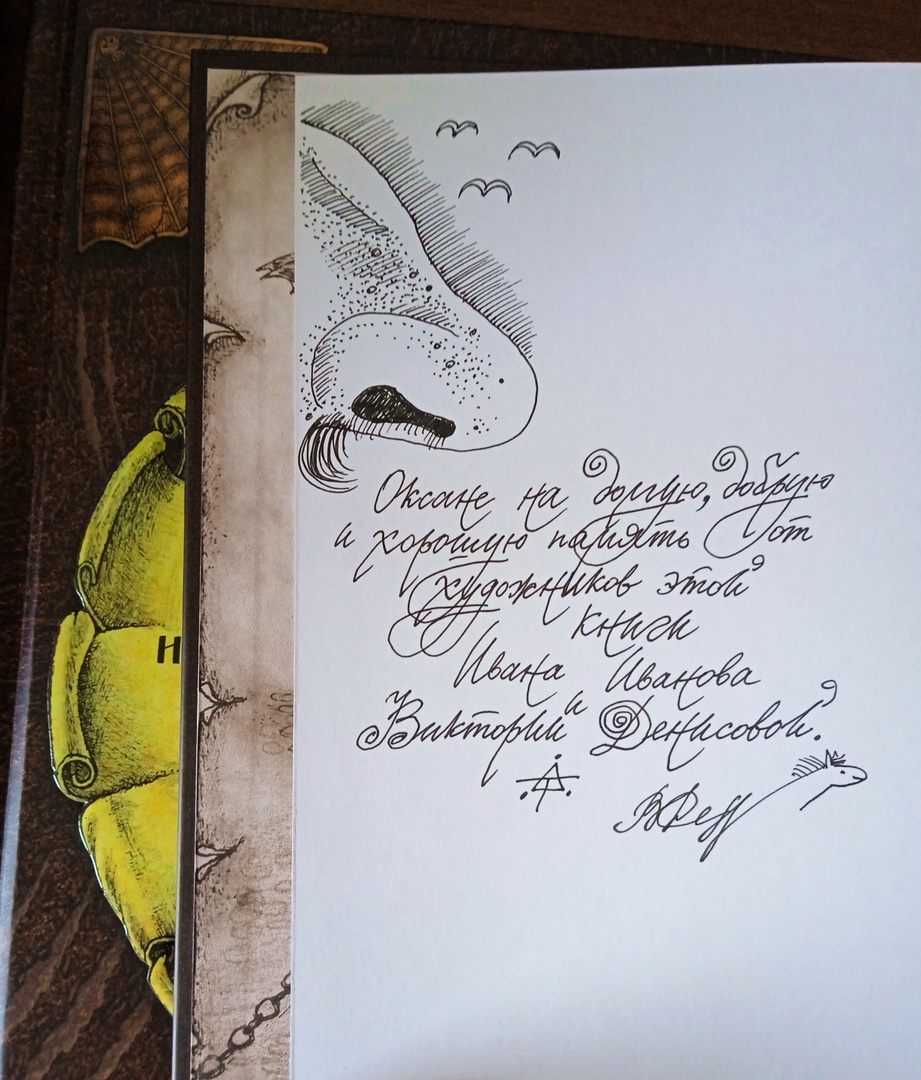 Н
Оксане на долгую, добрую
и хорошую память от
художников этой
книги
Ивана Иванова
и
Виктории Денисовой.